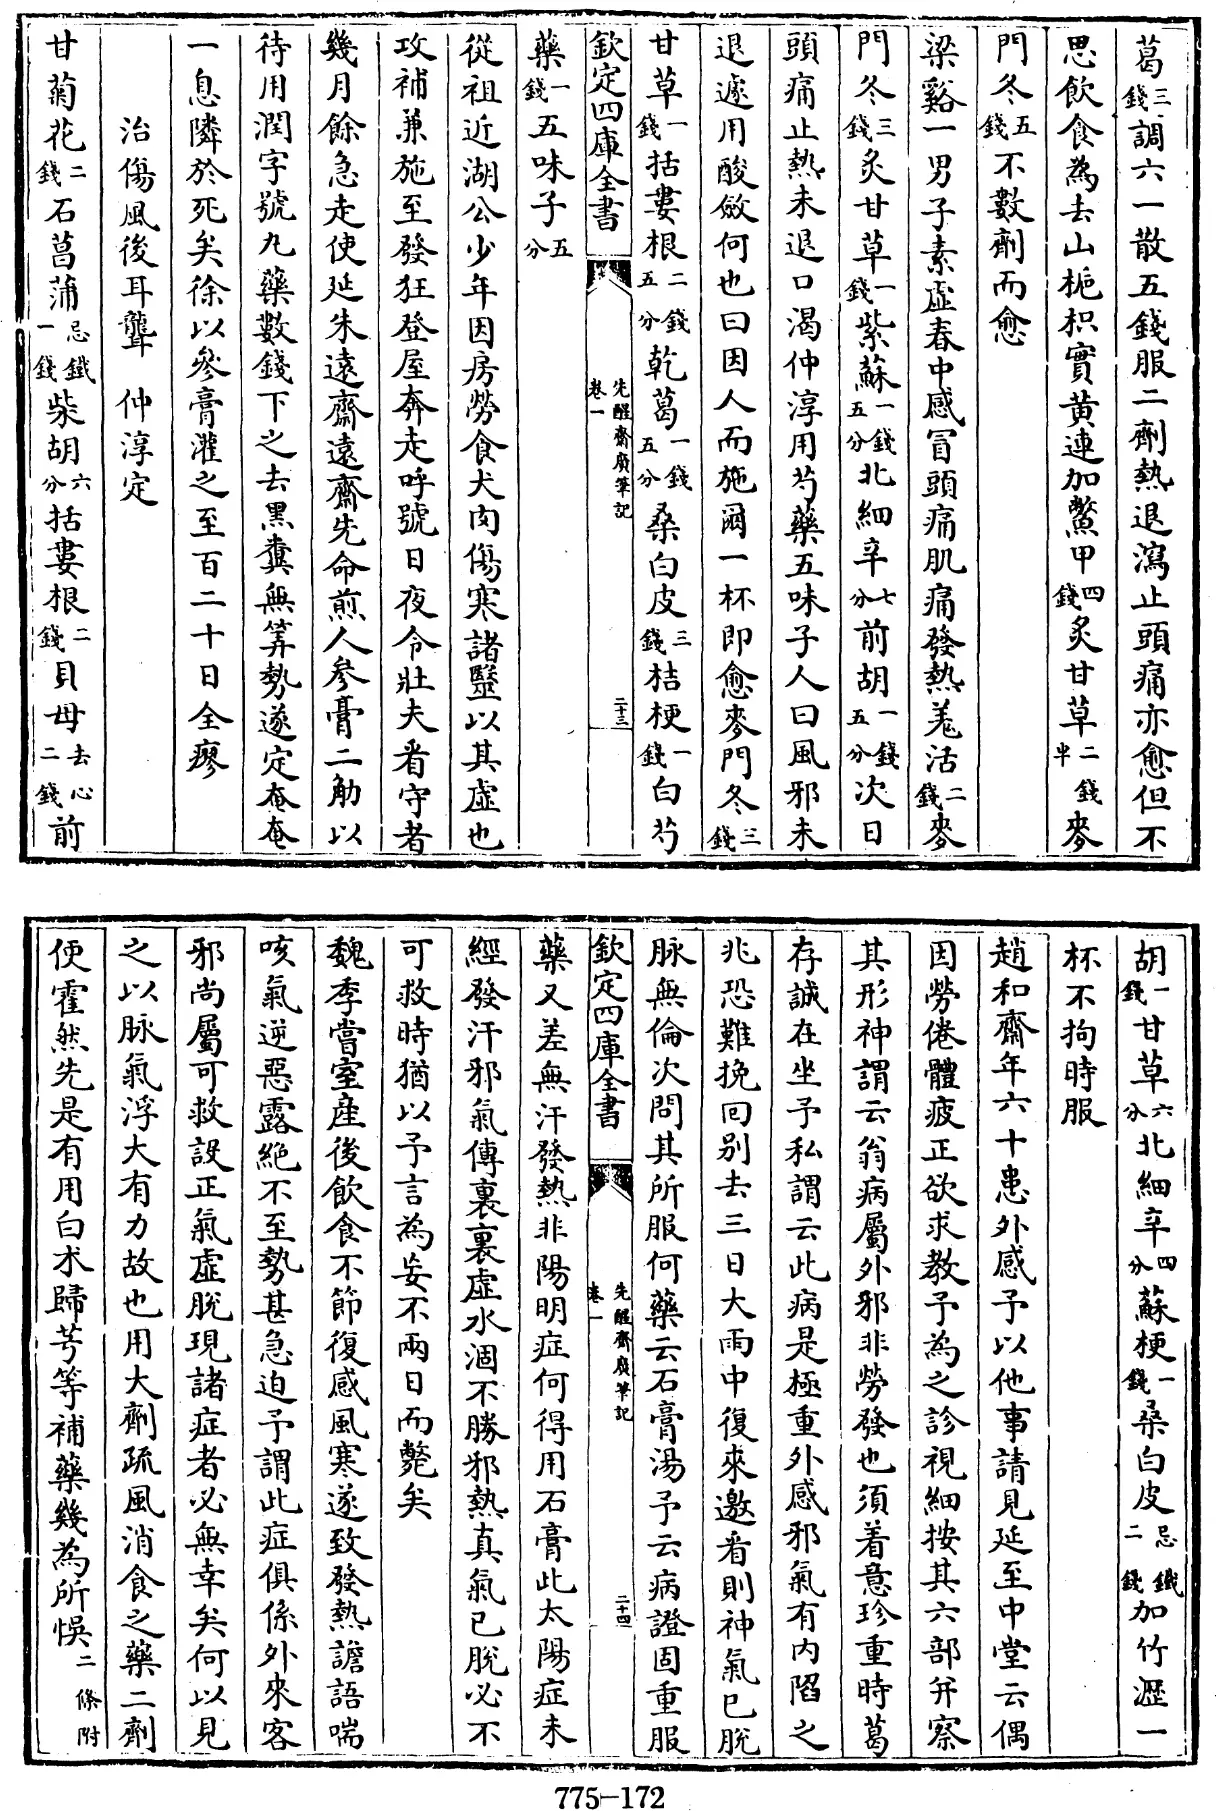 葛三錢調六一散五錢服二劑熱退瀉止頭痛亦愈但不
思飲食為去山梔枳實黄連加鱉甲四錢炙甘草二錢半麥
門冬五錢不數劑而愈
梁谿一男子素虚春中感冒頭痛肌痛發熱羗活二錢麥
門冬三錢炙甘草一錢紫蘇一錢五分北細辛七分前胡一錢五分次日
頭痛止熱未退口渴仲淳用芍藥五味子人曰風邪未
退遽用酸斂何也曰因人而施爾一杯即愈麥門冬三錢
甘草一錢括蔞根二錢五分乾葛一錢五分桑白皮三錢桔梗一錢白芍
欽定四庫全書
先醒齋廣筆記
卷一
二十三
藥一錢五味子五分
從祖近湖公少年因房勞食犬肉傷寒諸醫以其虚也
攻補兼施至發狂登屋奔走呼號日夜令壯夫看守者
幾月餘急走使延朱遠齋遠齋先命煎人參膏二觔以
待用潤字號丸藥數錢下之去黑糞無筭勢遂定奄奄
一息隣於死矣徐以參膏灌之至百二十日全瘳
治傷風後耳聾 仲淳定
甘菊花二錢石菖蒲忌鐵一錢柴胡六分括蔞根二錢貝母去心二錢前
胡一錢甘草六分北細辛四分蘇梗一錢桑白皮忌鐵二錢加竹瀝一
杯不拘時服
趙和齋年六十患外感予以他事請見延至中堂云偶
因勞倦體疲正欲求教予為之診視細按其六部并察
其形神謂云翁病屬外邪非勞發也須着意珍重時葛
存誠在坐予私謂云此病是極重外感邪氣有内陷之
兆恐難挽回别去三日大雨中復來邀看則神氣已脱
脉無倫次問其所服何藥云石膏湯予云病證固重服
欽定四庫全書
先醒齋廣筆記
卷一
二十四
藥又差無汗發熱非陽明症何得用石膏此太陽症未
經發汗邪氣傳裏裏虚水涸不勝邪熱真氣已脱必不
可救時猶以予言為妄不兩日而斃矣
魏季嘗室産後飲食不節復感風寒遂致發熱譫語喘
咳氣逆惡露絶不至勢甚急迫予謂此症俱係外來客
邪尚屬可救設正氣虚脱現諸症者必無幸矣何以見
之以脉氣浮大有力故也用大劑疏風消食之藥二劑
便霍然先是有用白术歸芎等補藥幾為所悞二條附
775-172